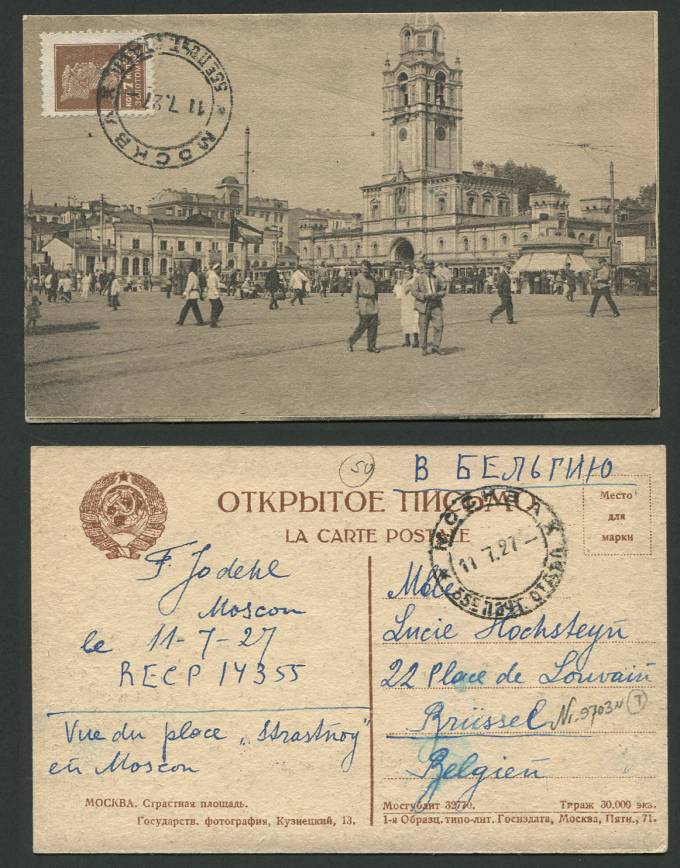 7
МОСКВА
11.7.27
В БЕЛЬГИЮ
50
ОТКРЫТОЕ ПИСЬМО
LA CARTE POSTALE
Место
для
марки
МОСКВА
11.7.27
F. Jodehl
Moscou
le 11-7-27
RECP 14355
Vue du place „Strastnoy"
en Moscou
Mlle
Lucie Hochsteyn
22 Place de Louvain
Brüssel
Belgien
МОСКВА. Страстная площадь.
Государств. фотография, Кузнецкий, 13.
Мосгублит 32770. Тираж 30.000 экз.
1-я Образц. типо-лит. Госиздата, Москва, Пятн., 71.